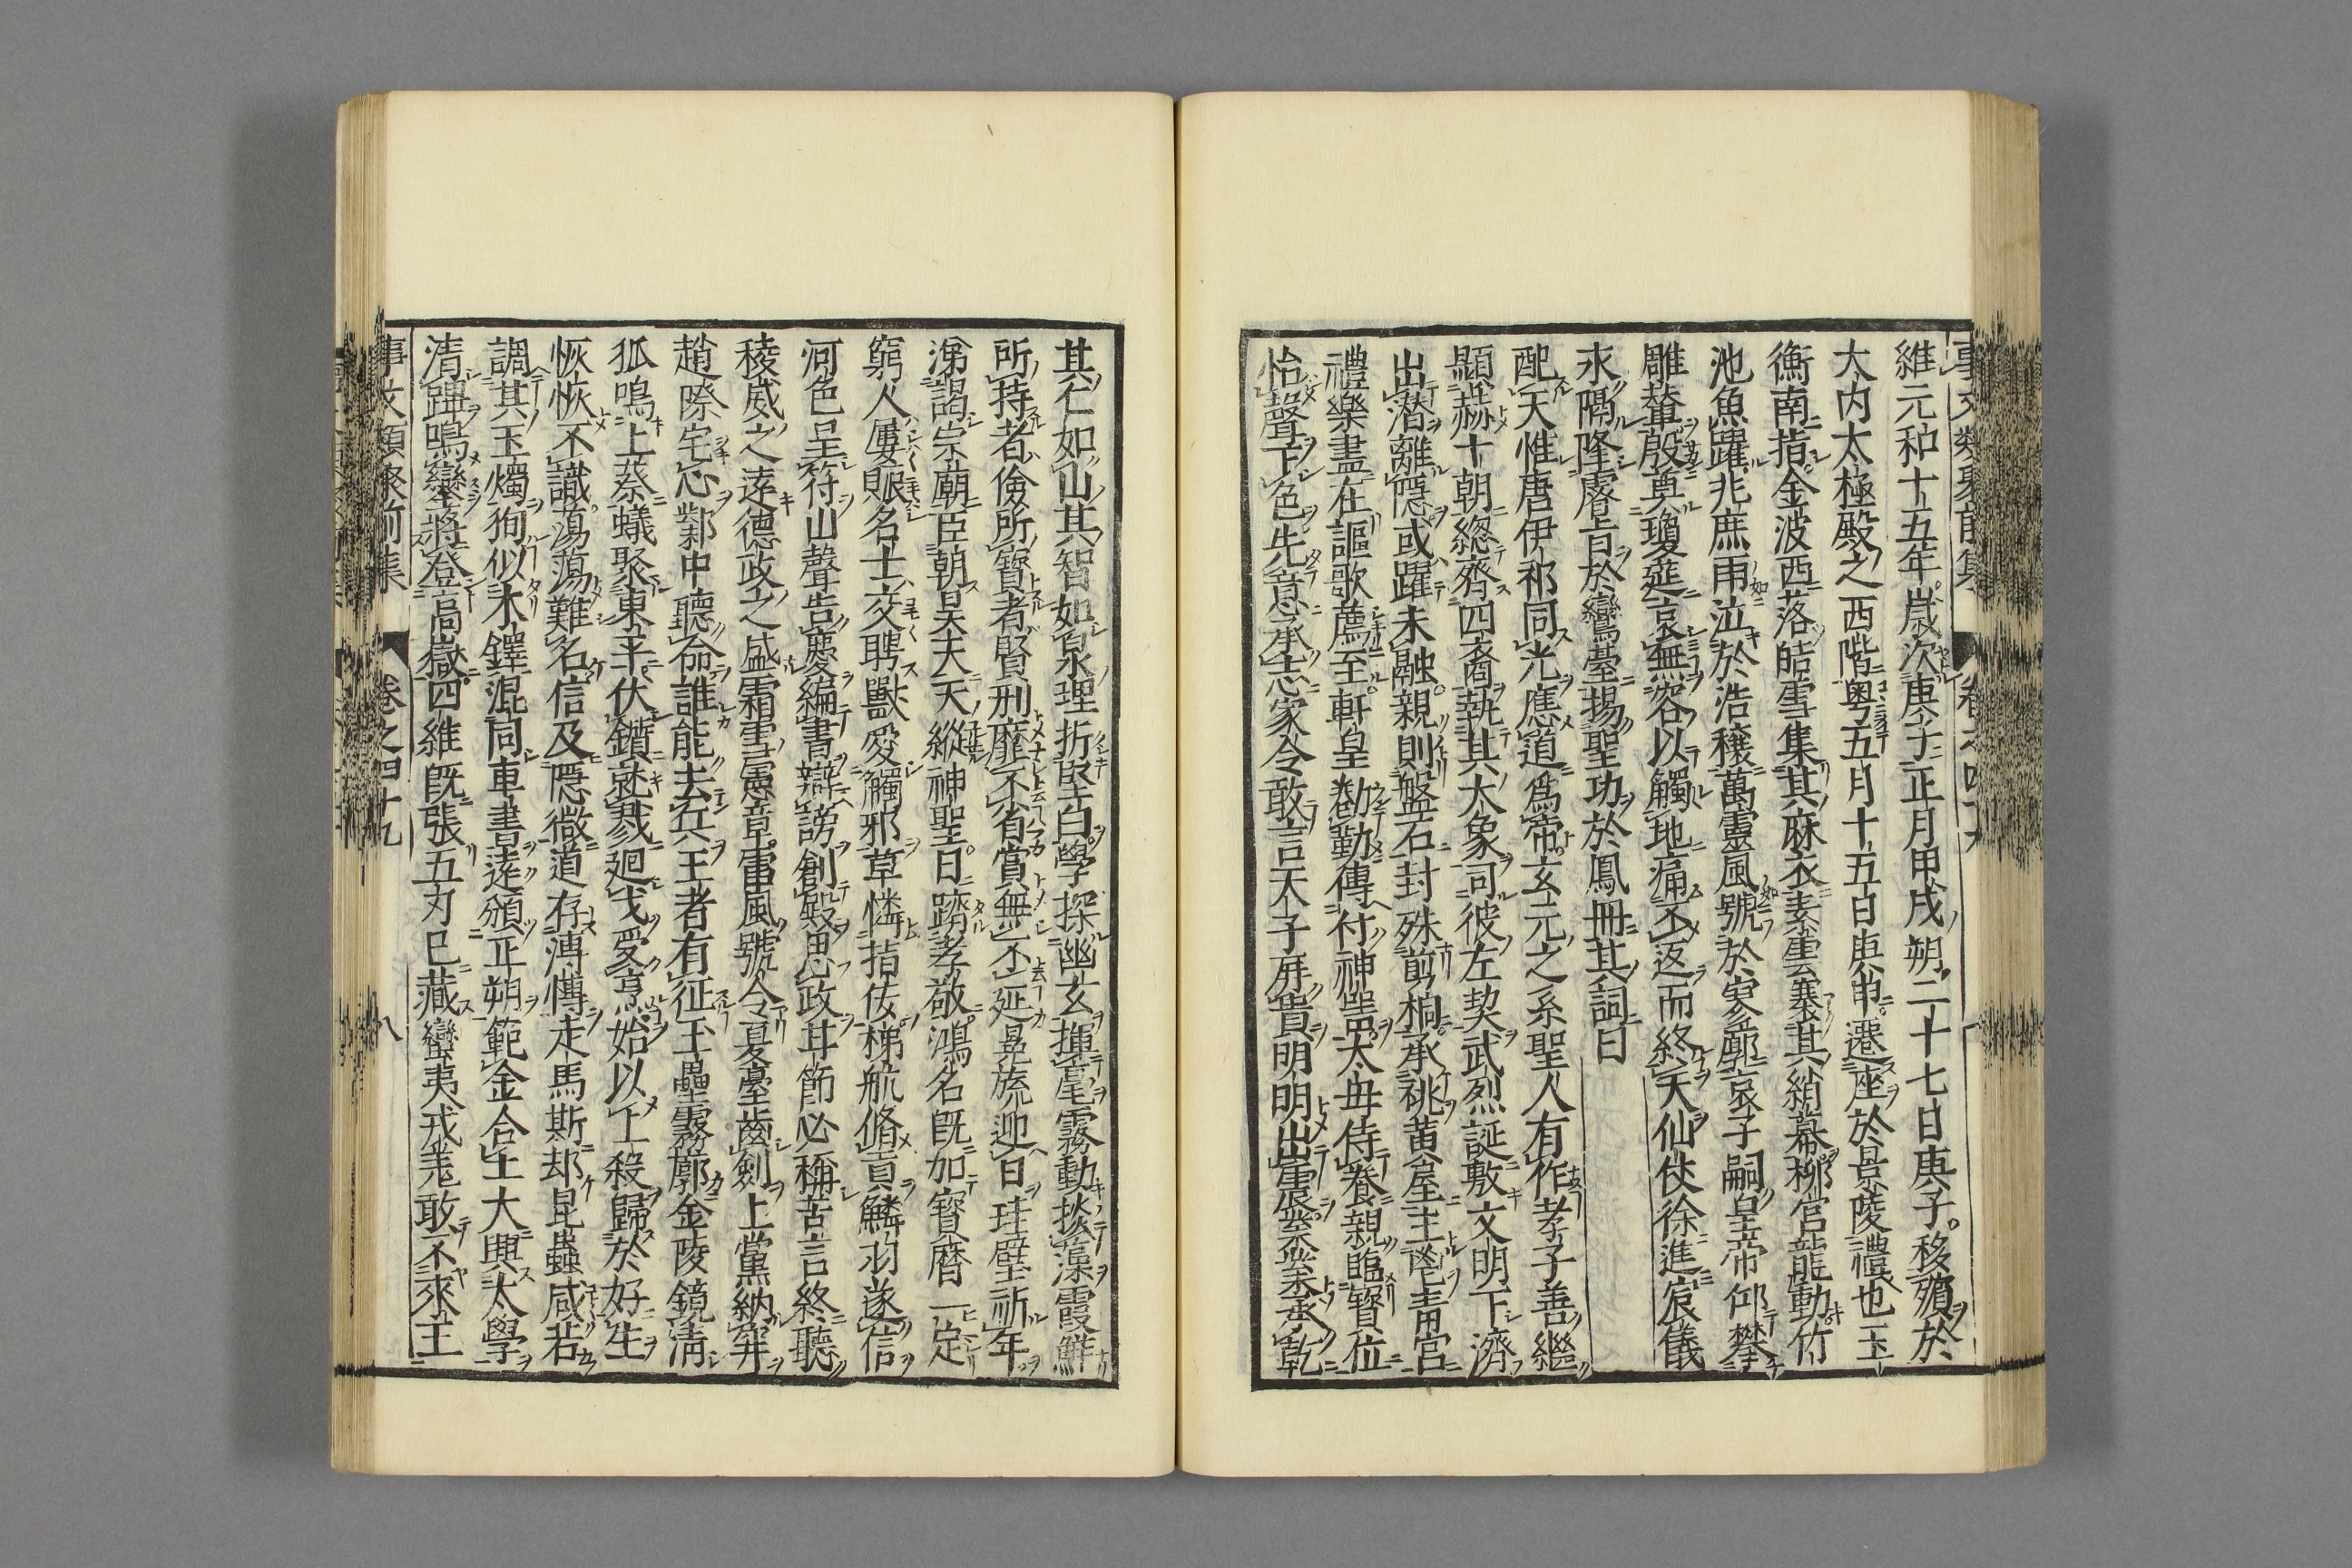 維元和十五年歳次庚子正月甲戌朔二十七日庚子移殯於
大内太極殿之西階粤五月十五日庚申遷座於景陵禮也玉
衡南指金波西落皓雪集其麻衣素雲褰其綃幕柳宮龍動竹
池魚躍兆庶雨泣於浩穰萬靈風號於寥廓哀子嗣皇帝仰攀
雕輦殷奠瓊筵哀無容以觸地痛不返而終天仙仗徐進宸儀
永隔隆睿旨於鸞臺揚聖功於鳳冊其詞曰
配天惟唐伊祁同光應道爲帝玄元之系聖人有作孝子善繼
顯赫十朝緫齊四裔執其大象司彼左契武烈誕敷文明下濟
出潜離隱或躍未融親則盤石封殊剪桐承祧黄屋主鬯青宮
禮樂盡在謳歌薦至軒皇勌勤傳付神器太毋侍養親臨寶位
怡聲下色先意承志家令敢言天子存貴明明出震烝烝承乾
其仁如山其智如泉理折堅白學探幽玄揮毫霧動掞藻霞鮮
所持者儉所寶者賢刑靡不省賞無不延晃旒迎日珪璧祈年
涕謁宗廟臣朝昊天天縱神聖日躋孝敬鴻名既加寶暦一定
窮人屢賑名士交聘獸愛觸邪草憐指佞梯航脩貢鱗羽遂信
河色呈符山聲告慶編書辯謗創殿思政耳節必稱苦言終聽
稜威之逺德政之盛霜雪憲章雷風號令夏臺齒劔上黨納穽
趙際宅心鄴中聽命誰能去兵王者有征玉壘霧廓金陵鏡清
狐鳴上蔡蟻聚東平伏鑕就戮廻戈受烹始以止殺歸於好生
恢恢不識蕩蕩難名信及隱微道存溥愽走馬斯却昆蟲咸若
調其玉燭狥似木鐸混同車書逺頒正朔範金合土大興太學
清蹕鳴鑾將登高嶽四維既張五刃已藏蠻夷戎羗敢不來王
事文類聚前集 卷之四十九 八